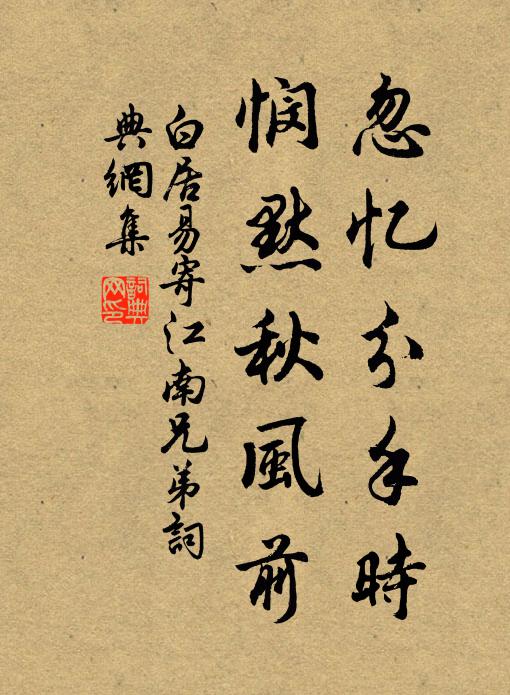 忽忆分手時
悯默秋風前
白居易寄江南兄弟詞
典網集
詞典网印